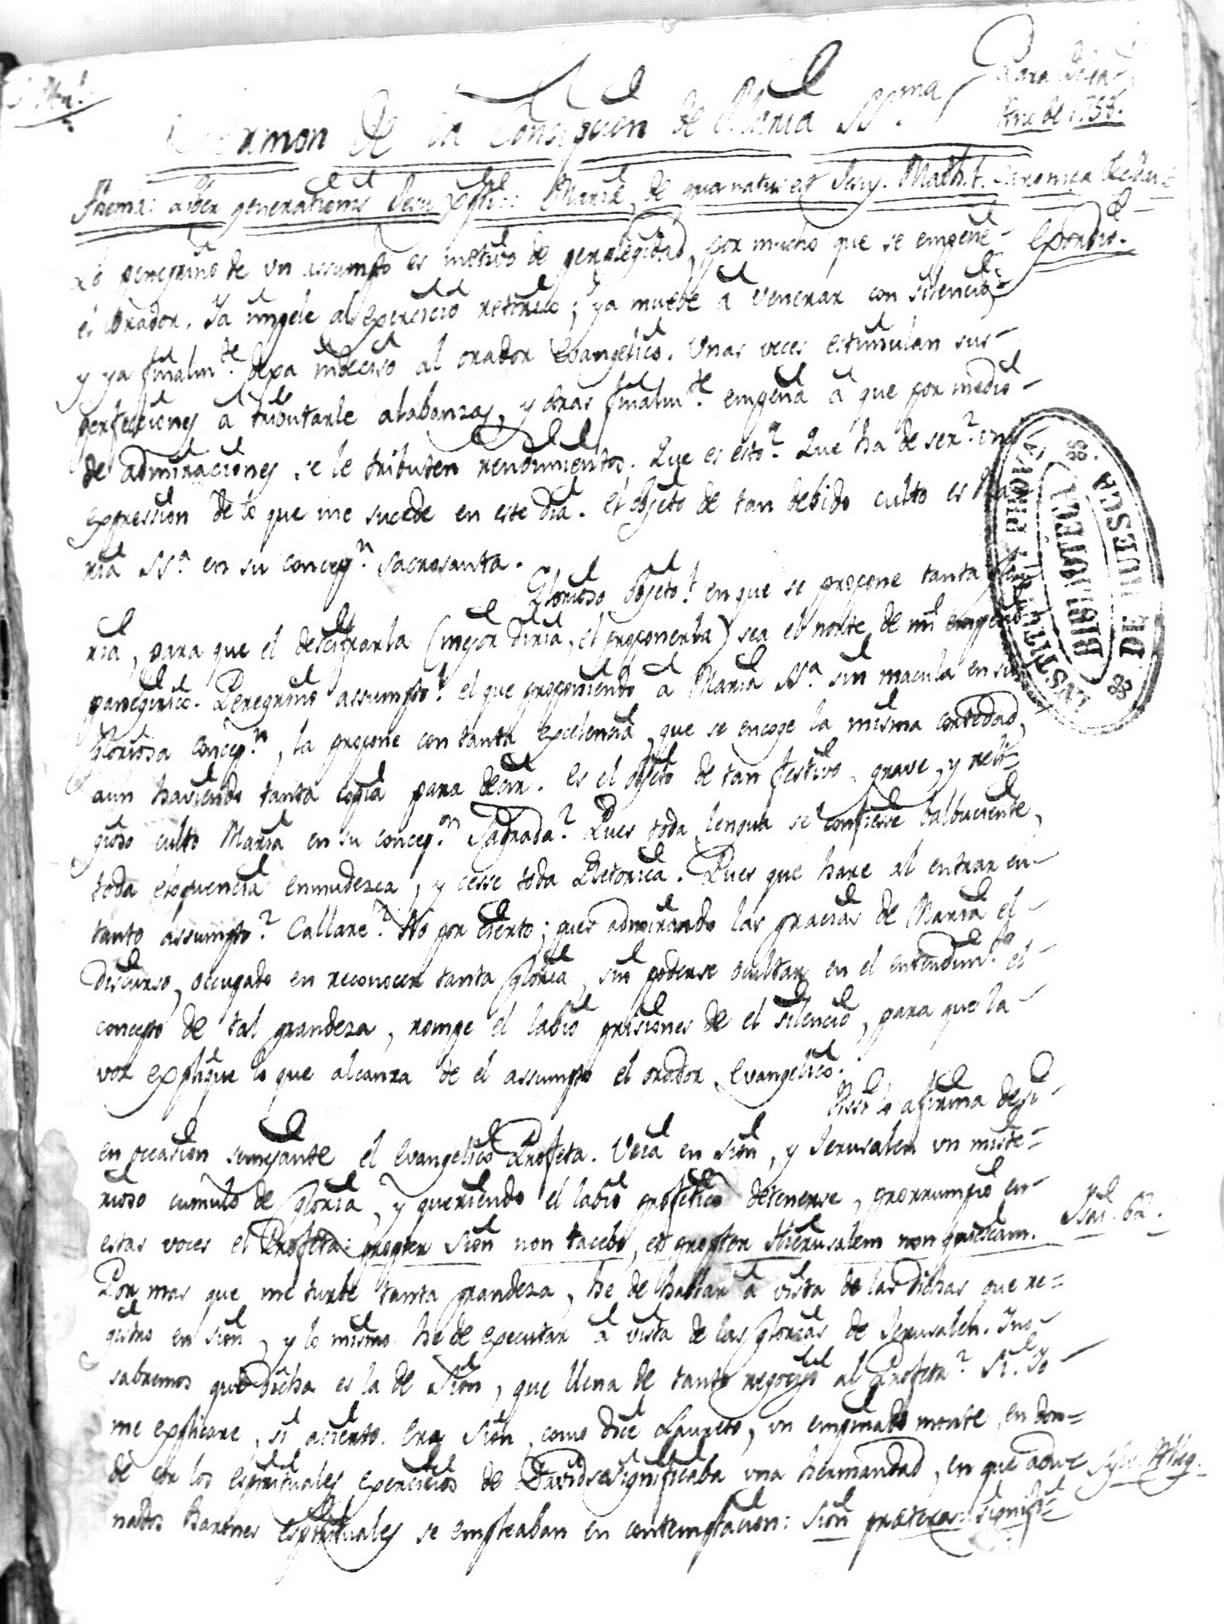 Sermon de la Concepcion de Maria SS.ma
Para
de 1758.
Thema: Liber generationis Jesu Xpti: Mariæ, de qua natus est Jesus. Math. 1.
Exordio.
Lo peregrino de un assumpto es motivo de perplegidad, por mucho que se empeñe
el orador. Ya impele al exercicio retorico; ya muebe a venerar con silencio,
y ya finalm.te dexa indeciso al orador Evangelico. Unas veces estimulan sus
perfecciones a tributarle alabanzas, y otras finalm.te empeña a que por medio
de admiraciones se le tributen rendimientos. Que es esto? Que ha de ser? una
expression de lo que me sucede en este dia. el objeto de tan debido culto es Ma
ria SS.a en su concep.n sacrosanta.
Glorioso objeto! en que se propone tanta
ria, para que el descifrarla (mejor diria, el proponerla) sea el norte de mi empeño
panegirico. Peregrino assumpto! el que proponiendo a Maria SS.a sin macula en su
gloriosa concep.n, la propone con tanta excelencia, que se encoge la misma cortedad,
aun haviendo tanta copia para decir. es el objeto de tan festivo, grave, y reli-
gioso culto Maria en su concep.on Sagrada? Pues toda lengua se confiesse balbuciente,
toda eloquencia enmudezca, y cesse toda Retorica. Pues que hare al entrar en
tanto assumpto? Callare? No por cierto; pues admirando las gracias de Maria el
Discurso, occupado en reconocer tanta gloria, sin poderse ocultar en el entendim.to el
concepto de tal grandeza, rompe el labio prisiones de el silencio, para que la
voz explique lo que alcanza de el assumpto el orador Evangelico.
Assi lo afirma de si
en occasion semejante el Evangelico Profeta. Veia en Sion, y Jerusalen un miste-
rioso cumulo de gloria, y queriendo el labio profetico detenerse, prorrumpio en
estas voces el Profeta: propter Sion non tacebo, et propter Hierusalem non quiescam.
Isai. 62.
Por mas que me turbe tanta grandeza, he de hablar a vista de las dichas que re-
gistro en Sion, y lo mismo he de executar a vista de las glorias de Jerusalen. Y no
sabremos que dicha es la de Sion, que llena de tanto regocijo al Profeta? Si. Yo
me explicare, si acierto. era Sion, como dice Laureto, un empinado monte, en don=
de por los espirituales exercicios de David se significaba una hermandad, en que
Sylv. Alleg.
nados Barones espirituales se empleaban en contemplacion: Sion præterea signifi-
INSTITUTO
PROVINCIAL
BIBLIOTECA
DE HUESCA